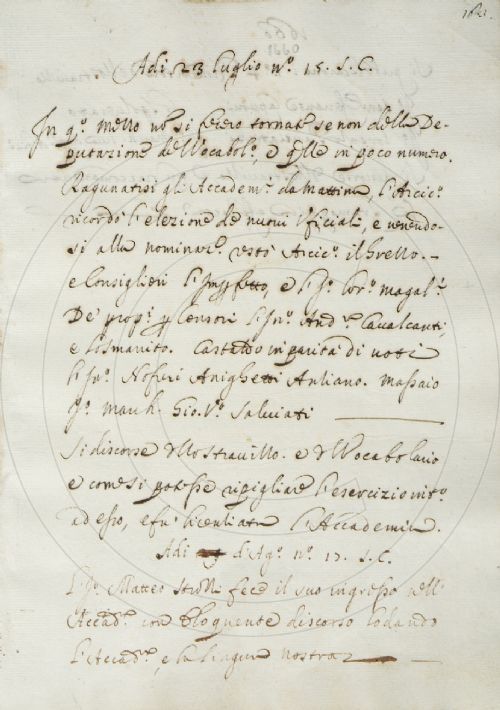 1641.
Adi 23 luglio nº. 15. S.C.
In qº. mese nō si fecero tornate se non della De-
putazione del Vocabolº. e qlle in poco numero.
Ragunatisi gli Accademⁱ. da mattina, l'Arcicº.
ricordò l'elezione de nuovi Ufficiali, e venendo-
si alla nominazⁿ. restò Arcicº. il
e Consiglieri e l' Sº. Lorº. magalⁱ.
De' propⁱ. p Censori l' Sʳ. Andʳ. Cavalcanti,
e Castello in parità di voti
l' Sʳ. Noferi Auliano. Massaio
Sº. march. Gio. Vº. Salviati
Si discorse e d'Vocabolario
e come si potesse ripigliare l'esercizio intº.
ad esso, e fu licenziata l'Accademia.
Adi d'Agº. nº. 17. S.C.
l' Sº. Matteo Strozzi fece il suo ingresso nell'
Accadª. con eloquente discorso lodando
l'Accadª. e la lingua nostra